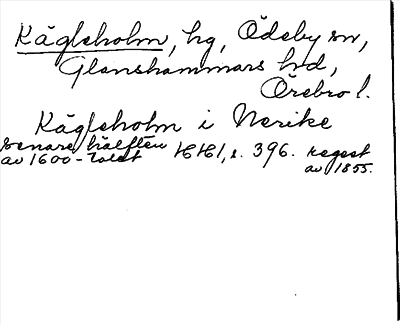 Kägleholm, hg, Ödeby sn,
Glanshammars hd,
Örebro l.
Kägleholm i Nerike
senare hälften
av 1600-talet HH1, s. 396. Regest
av 1855.